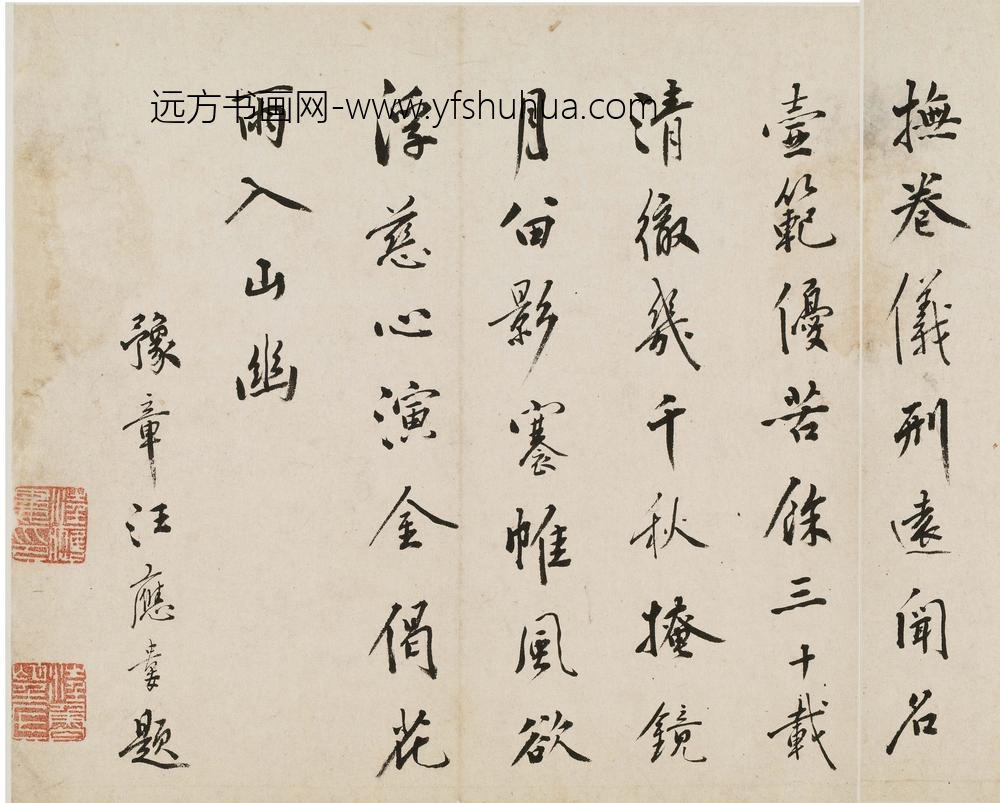 撫卷儀刑遠聞名
壼範優苦餘三十載
清徹幾千秋掩鏡
月留影褰帷風欲
浮慈心演金偈花
雨入山幽
豫章汪應婁題
远方书画网-www.yfshuhua.com